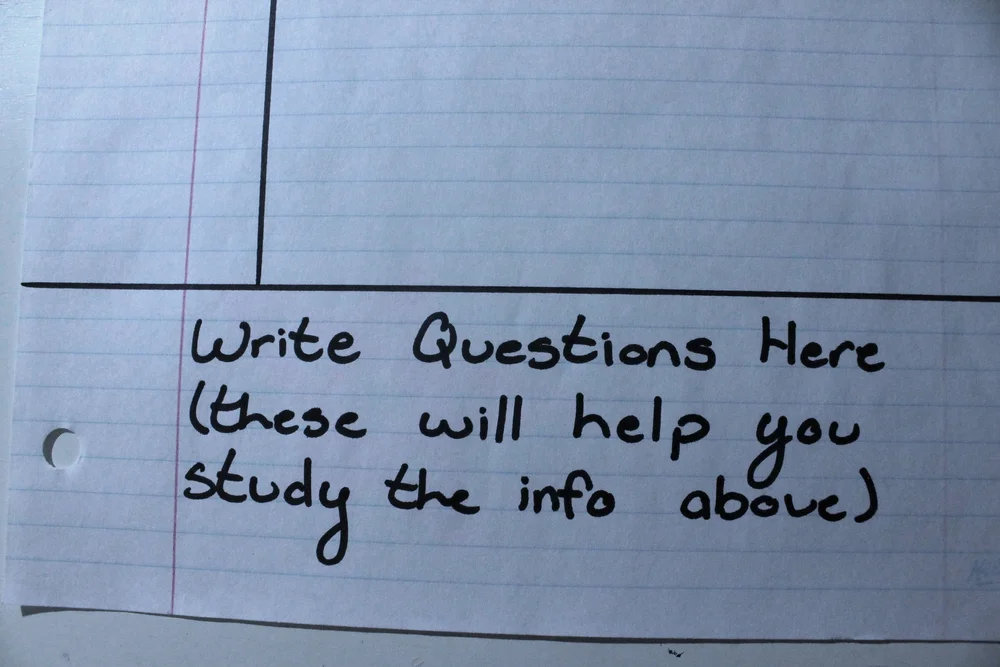 Write Questions Here
(these will help you
study the info above)